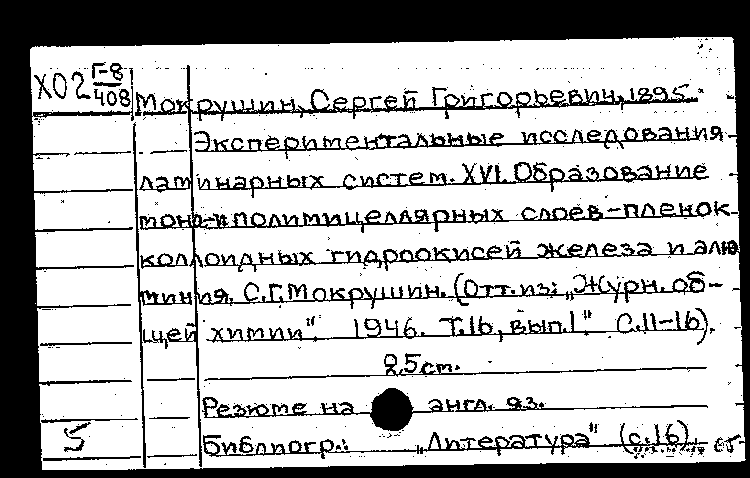 Х02 Г-8
408 Мокрушин, Сергей Григорьевич, 1895.
Экспериментальные исследования
ламинарных систем. XVI. Образование
моно-и полимицеллярных слоев-пленок
коллоидных гидроокисей железа и алю
миния. С.Г.Мокрушин. (Отт.из: „Журн. об-
щей химии". 1946. Т.16, вып.1" С.11-16).
25см.
Резюме на англ. яз.
5 Библиогр.: „Литература" (с.16).